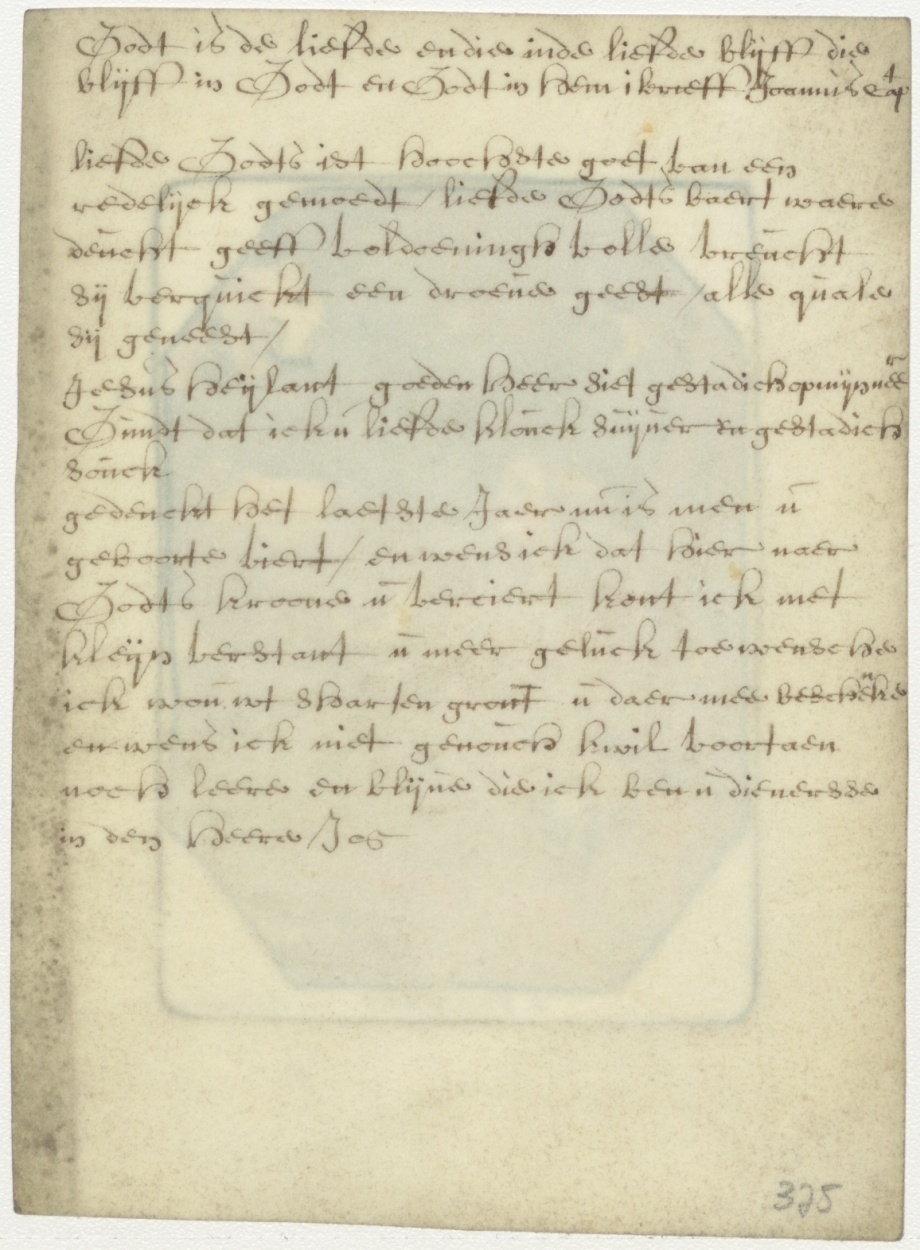 Godt is de liefde en die inde liefde blijft die
blijft in Godt en Godt in hem i brieff Joannis 4 cap
liefde Godts ist hoochste goet van een
redelijck gemoedt / liefde Godts baert waere
deucht geeft voldoeningh volle vreucht
sij verquickt een droeve geest / alle quale
sij geneest /
Jesus heijlant goeden heer siet gestadich op mijn neer
Gundt dat ick u liefde klouck suijver en gestadich
souck
gedenckt het laetste Jaer nu is men u
geboorte viert / en wens ick dat hier naer
Godts kroone u verciert kont ick met
kleijn verstant u meer geluck toe wensche
ick wou wt sharten gront u daer mee beschencke
en wens ick niet genouch kwil voortaen
noch leere en blijve die ick ben u dienersse
in den heere / Jos
325